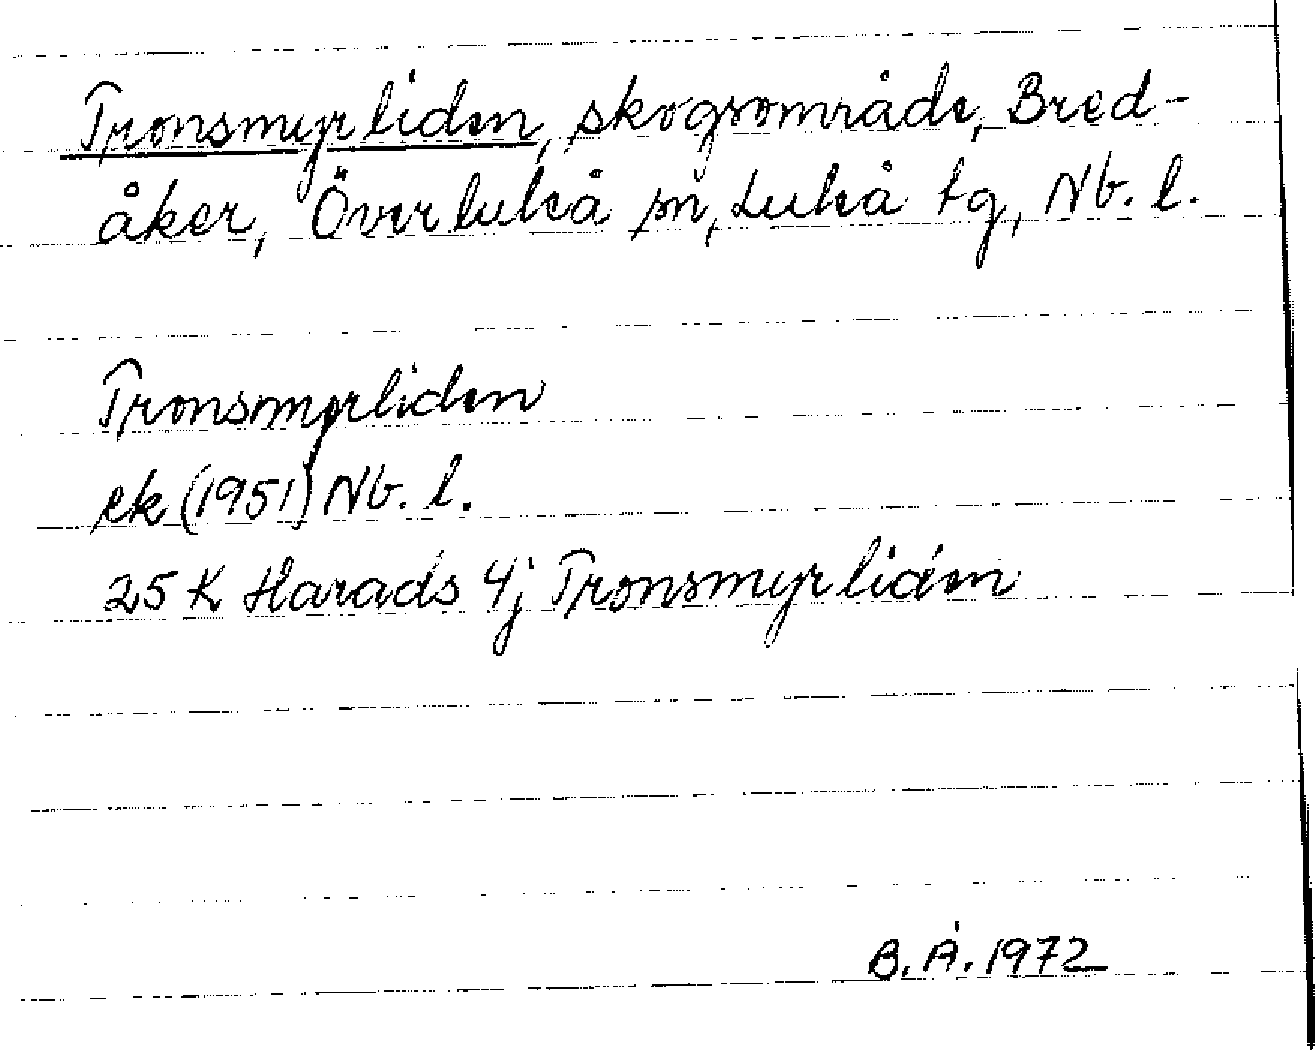 Tronsmyrliden, skogsområde, Bred-
åker, Överluleå sn, Luleå tg, Nb. l.
Tronsmyrliden
ek (1951) Nb. l.
25 K Harads 4j Tronsmyrliden
B. Å. 1972